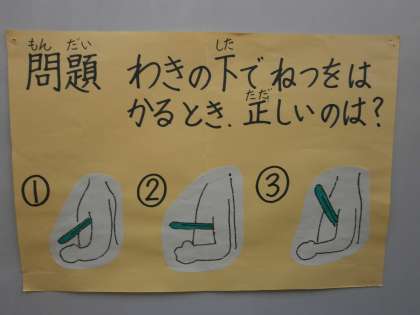 もんだい
問題
した
わきの下でねつをは
ただ
かるとき.正しいのは?
① ② ③